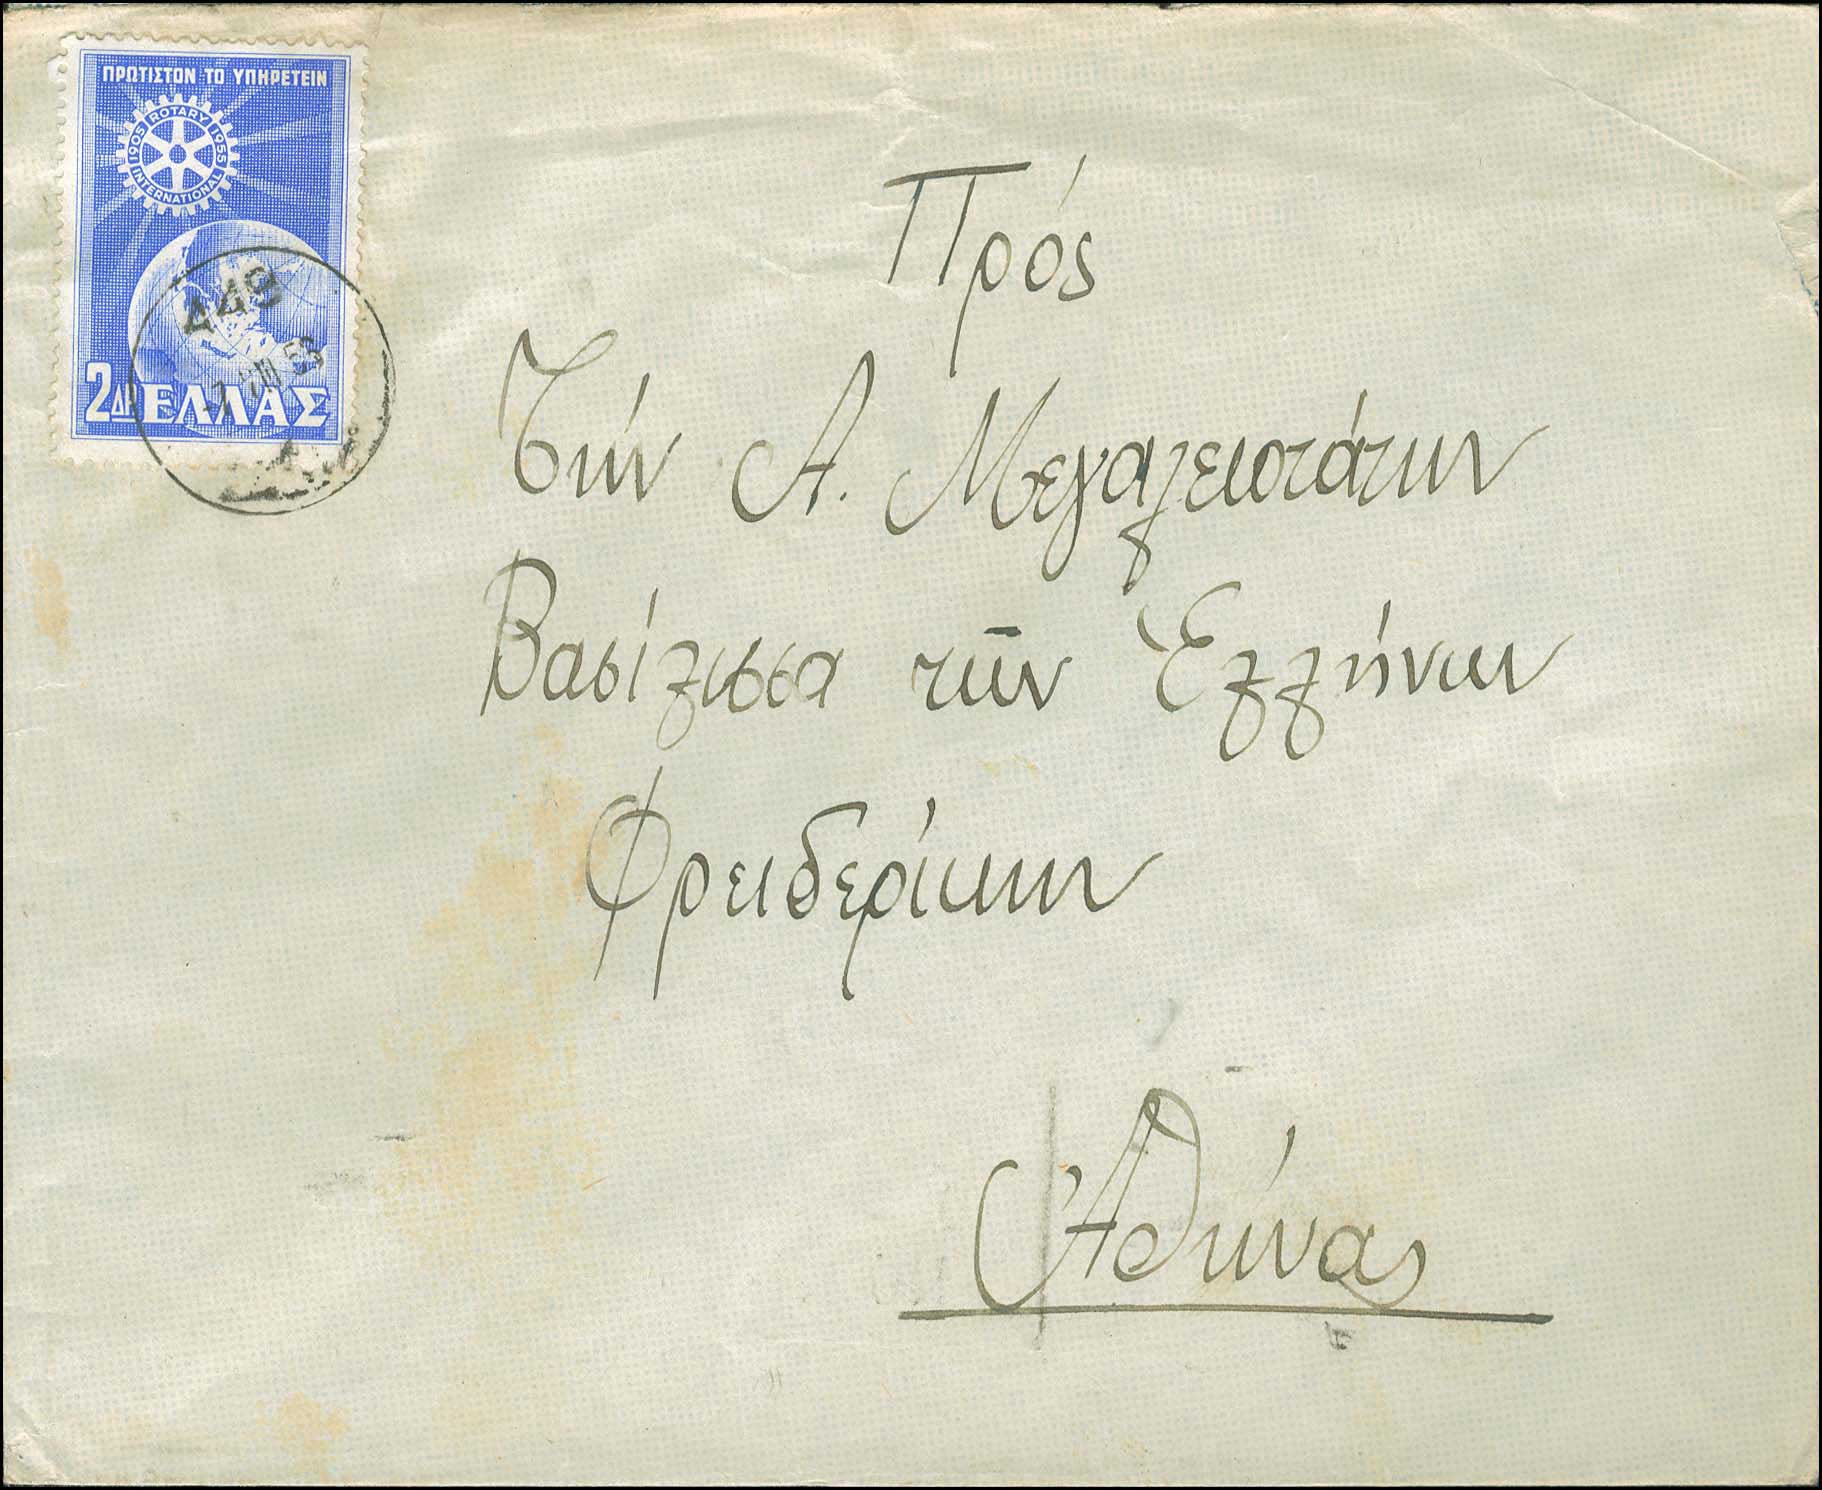 ΠΡΩΤΙΣΤΟΝ ΤΟ ΥΠΗΡΕΤΕΙΝ
ROTARY
1905 1955
INTERNATIONAL
449
2ΔΡ ΕΛΛΑΣ
Πρός
Τήν Α. Μεγαλειοτάτην
Βασίλισσα τῶν Ἑλλήνων
Φρειδερίκην
Ἀθήνας